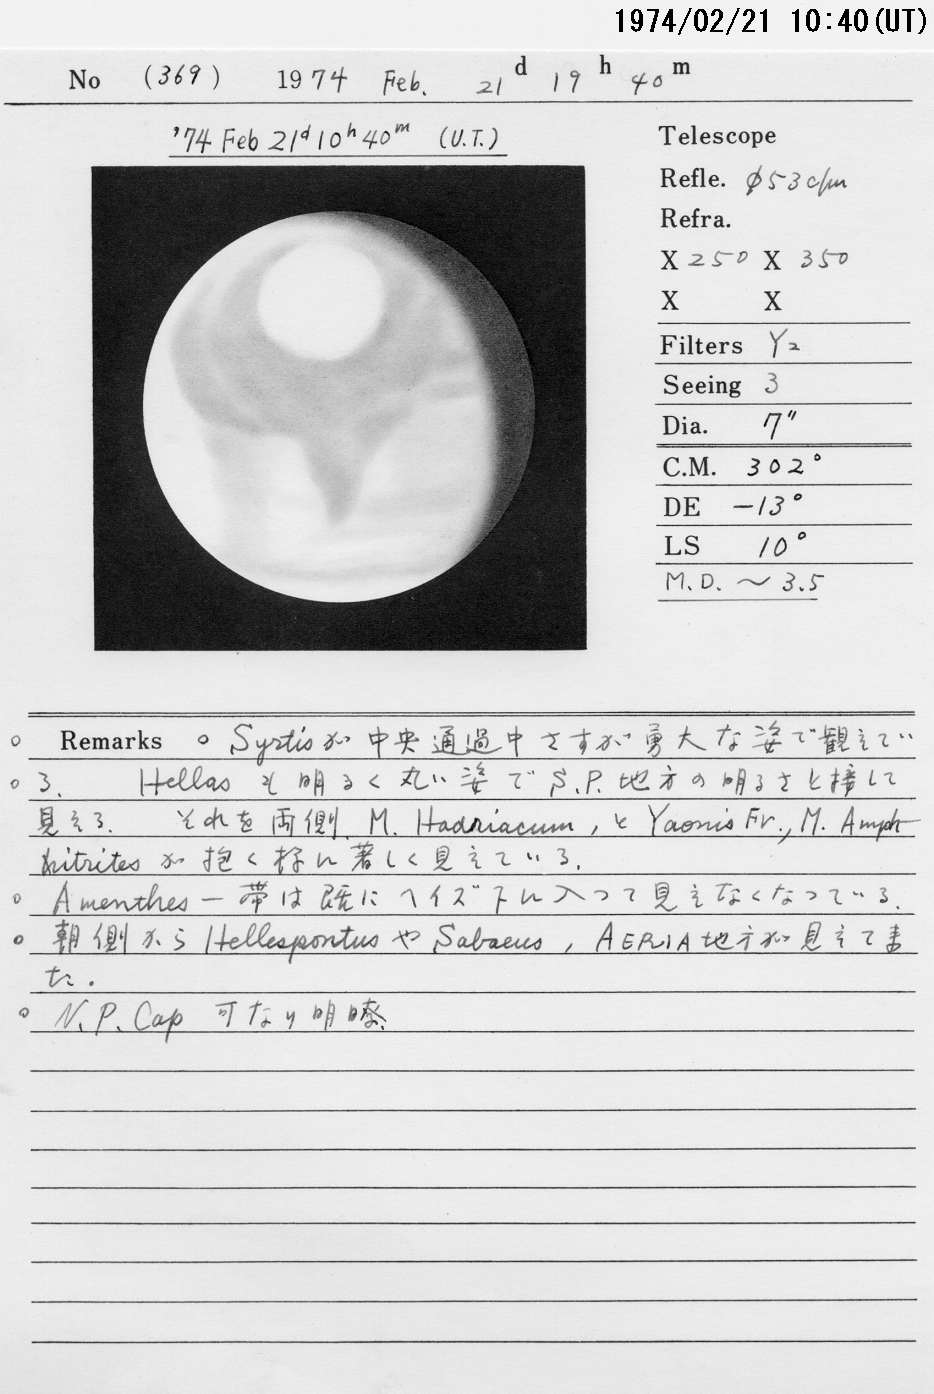 1974/02/21 10:40(UT)
No (369) 1974 Feb. 21 d 19 h 40 m
'74 Feb 21d 10h 40m (U.T.)
Telescope
Refle. φ53c/m
Refra.
X 250 X 350
X X
Filters Y2
Seeing 3
Dia. 7"
C.M. 302°
DE -13°
LS 10°
M.D. ~ 3.5
Remarks ○ Syrtisが中央通過中さすが勇大な姿で観えてい
る. Hellasも明るく丸い姿でS.P.地方の明るさと接して
見える. それを両側 M. Hadriacum, と Yaonis Fr., M. Amph-
itritesが抱く様に著しく見えている.
Amenthes一帯は既にヘイズ下に入って見えなくなっている.
朝側からHellespontusやSabaeus, AERIA地方が見えてき
た.
N.P. Cap 可なり明瞭.